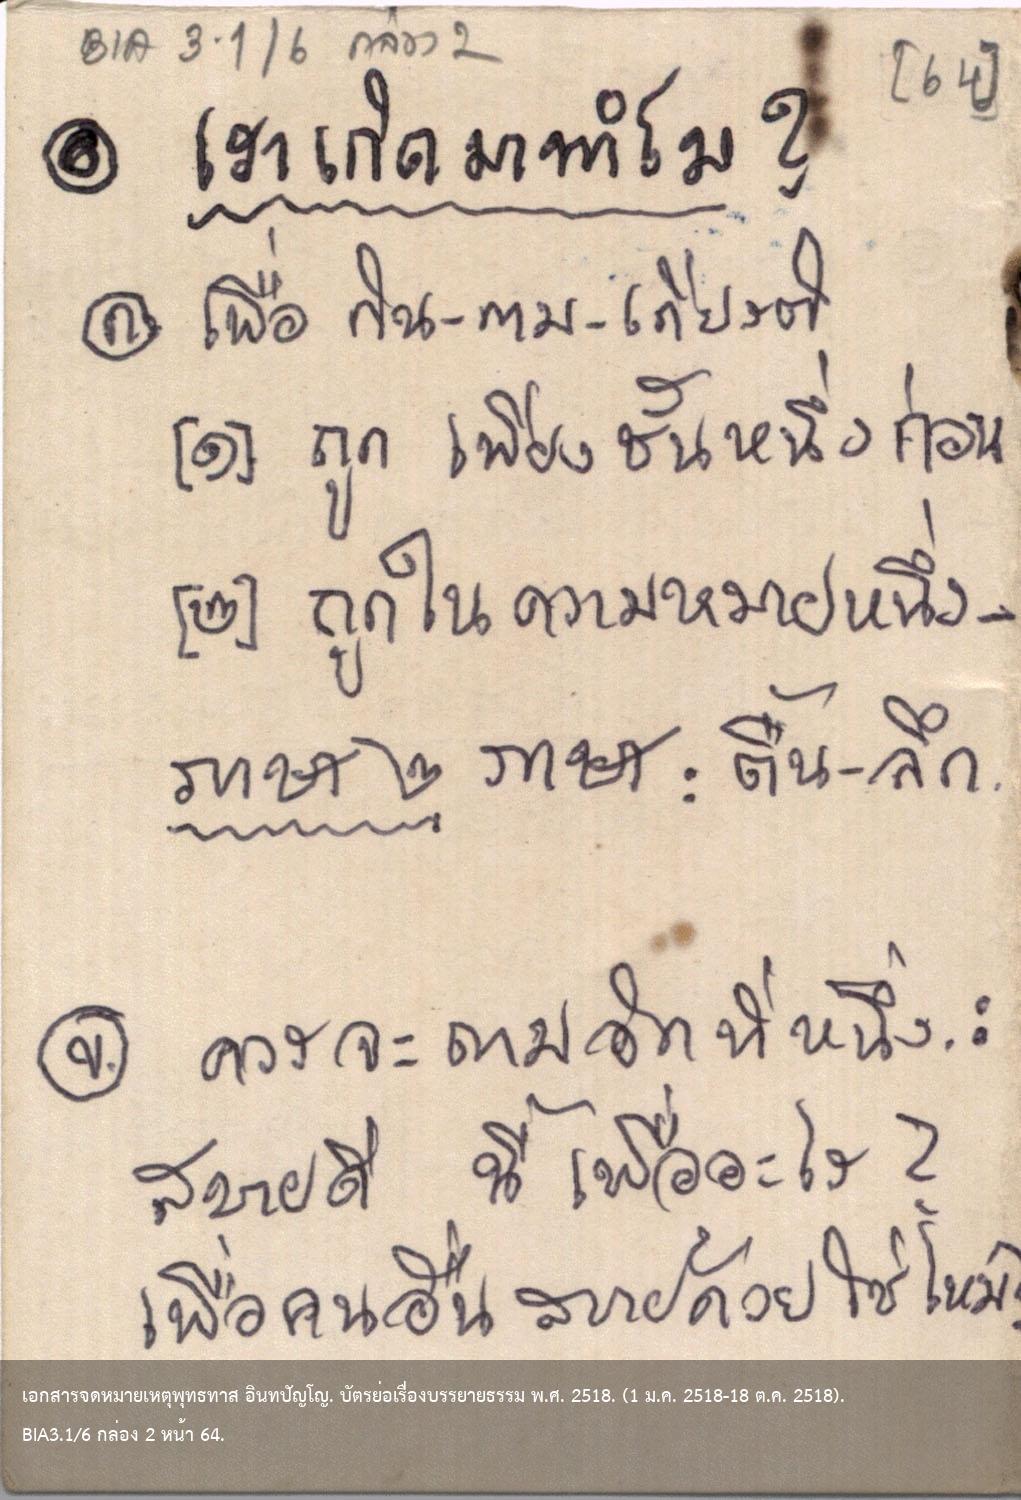 BIA 3.1/6 กล่อง 2
[64]
๑ เราเกิดมาทำไม ?
ก. เพื่อ กิน-กาม-เกียรติ
[๑] ถูก เพียงชั้นหนึ่งก่อน
[๒] ถูกในความหมายหนึ่ง-
ภาษา ๒ ภาษา : ตื้น-ลึก.
ข. ควรจะถามอีกทีหนึ่ง. :
สบายดี นี้ เพื่ออะไร ?
เพื่อคนอื่นสบายด้วยใช่ไหม?
เอกสารจดหมายเหตุพุทธทาส อินทปัญโญ. บัตรย่อเรื่องบรรยายธรรม พ.ศ. 2518. (1 ม.ค. 2518-18 ต.ค. 2518).
BIA3.1/6 กล่อง 2 หน้า 64.